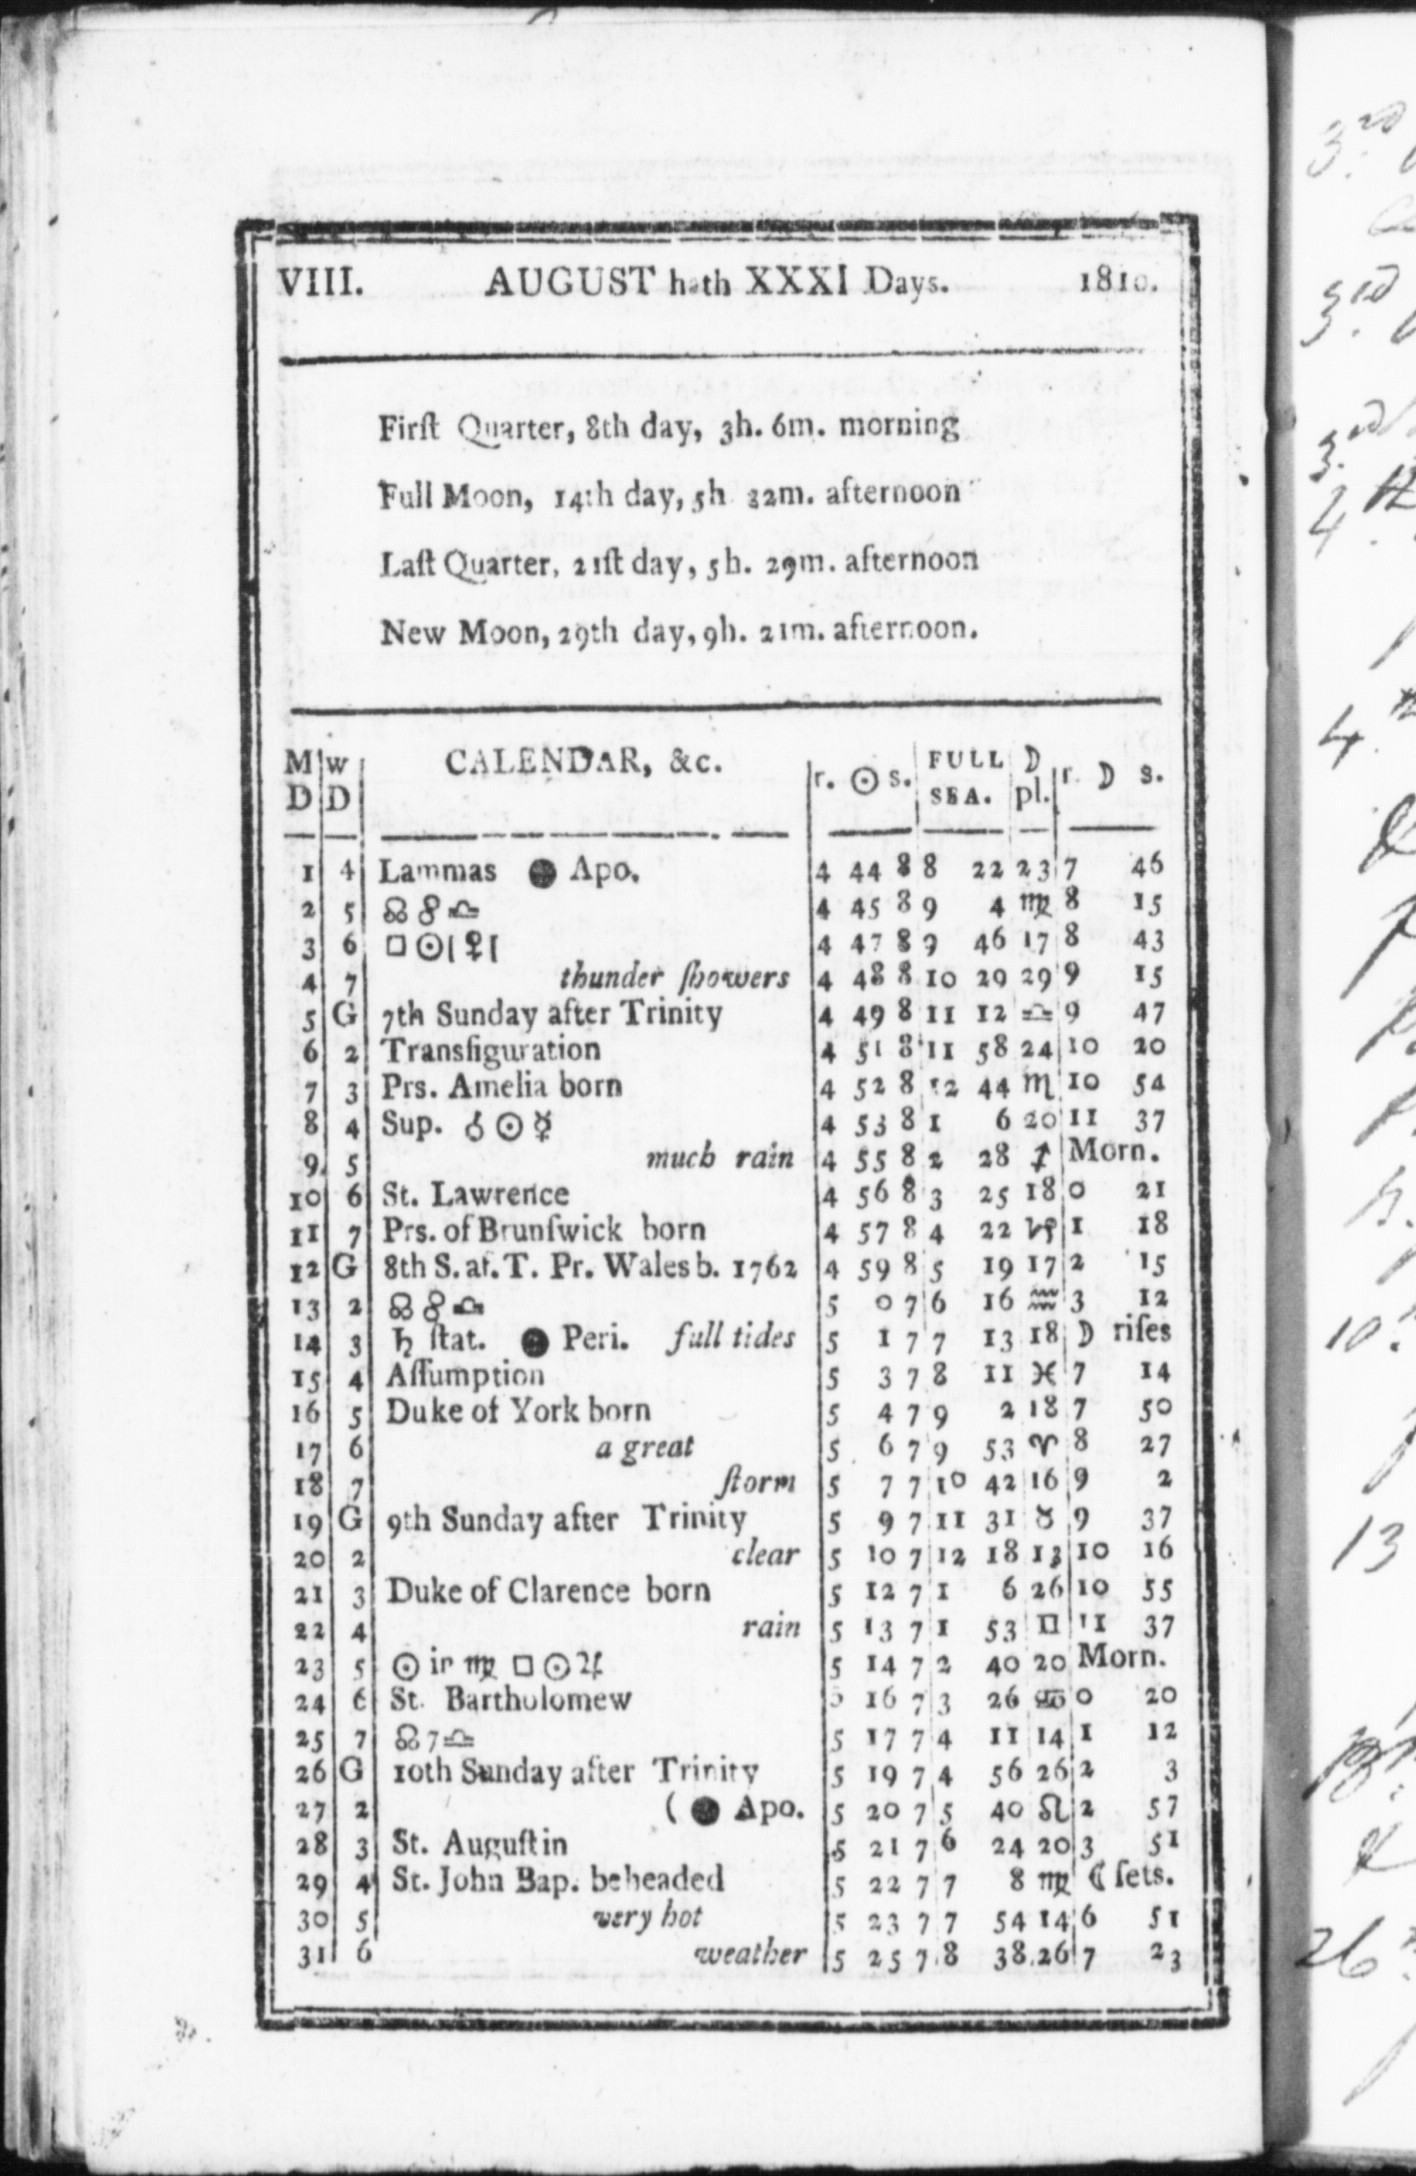 VIII. AUGUST hath XXXI Days. 1810.
Firſt Quarter, 8th day, 3h. 6m. morning
Full Moon, 14th day, 5h 32m. afternoon
Laſt Quarter, 21ſt day, 5h. 29m. afternoon
New Moon, 29th day, 9h. 21m. afternoon.
M D W D CALENDAR, &c. r. ☉ s. FULL SEA. ☽ pl. r. ☽ s.
1 4 Lammas ● Apo. 4 44 8 8 22 23 7 46
2 5 ☊ ☍ ♎ 4 45 8 9 4 ♍ 8 15
3 6 □ ☉ ♀ 4 47 8 9 46 17 8 43
4 7 thunder ſhowers 4 48 8 10 29 29 9 15
5 G 7th Sunday after Trinity 4 49 8 11 12 ♎ 9 47
6 2 Transfiguration 4 51 8 11 58 24 10 20
7 3 Prs. Amelia born 4 52 8 12 44 ♏ 10 54
8 4 Sup. ☌ ☉ ☿ 4 53 8 1 6 20 11 37
9 5 much rain 4 55 8 2 28 ♐ Morn.
10 6 St. Lawrence 4 56 8 3 25 18 0 21
11 7 Prs. of Brunſwick born 4 57 8 4 22 ♑ 1 18
12 G 8th S. af. T. Pr. Wales b. 1762 4 59 8 5 19 17 2 15
13 2 ☊ ☍ ♎ 5 0 7 6 16 ♒ 3 12
14 3 ♄ ſtat. ● Peri. full tides 5 1 7 7 13 18 ☽ riſes
15 4 Aſſumption 5 3 7 8 11 ♓ 7 14
16 5 Duke of York born 5 4 7 9 2 18 7 50
17 6 a great 5 6 7 9 53 ♈ 8 27
18 7 ſtorm 5 7 7 10 42 16 9 2
19 G 9th Sunday after Trinity 5 9 7 11 31 ♉ 9 37
20 2 clear 5 10 7 12 18 13 10 16
21 3 Duke of Clarence born 5 12 7 1 6 26 10 55
22 4 rain 5 13 7 1 53 ♊ 11 37
23 5 ☉ in ♍ □ ☉ ♃ 5 14 7 2 40 20 Morn.
24 6 St. Bartholomew 5 16 7 3 26 ♋ 0 20
25 7 ☊ 7 ♎ 5 17 7 4 11 14 1 12
26 G 10th Sunday after Trinity 5 19 7 4 56 26 2 3
27 2 ( ● Apo. 5 20 7 5 40 ♌ 2 57
28 3 St. Auguſtin 5 21 7 6 24 20 3 51
29 4 St. John Bap. beheaded 5 22 7 7 8 ♍ ☾ ſets.
30 5 very hot 5 23 7 7 54 14 6 51
31 6 weather 5 25 7 8 38 26 7 23
3rd
3rd
3rd
4
4
10
13
18
26